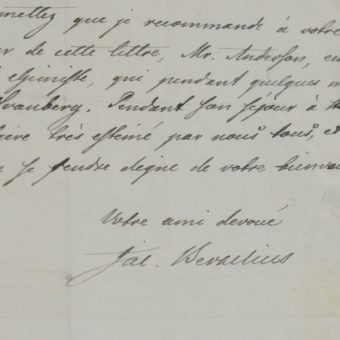 mettez que je recommande à votre
r de cette lettre, Mr. Anderson, en
chimiste, qui pendant quelques m
Svanberg. Pendant son séjour à
ève très estimé par nous tous, et
se rendre digne de votre bienv
Votre ami devoué
Jac. Berzelius